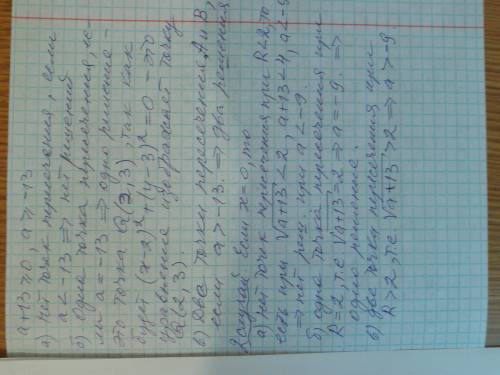 а+13≥0, а≥-13
а) нет точек пересечения, если
а<-13 ⇒ нет решений
б) одна точка пересечения, ес-
ли а=-13 ⇒ одно решение-
это точка Q(2,3), так как
будет (x-2)²+(y-3)²=0 - это
уравнение изображает точку
Q(2,3)
в) Две точки пересечения A и B,
если а>-13. ⇒ два решения
2 случай если x=0, то
а) нет точек пересечения при R<2, то
есть при √a+13<2, a+13<4, a<-9
⇒ нет реш. при a<-9.
б) одна точка пересечения при
R=2, т.е √a+13=2 ⇒ a=-9. ⇒
одно решение.
в) две точки пересечения при
R>2, т.е √a+13>2 ⇒ a>-9